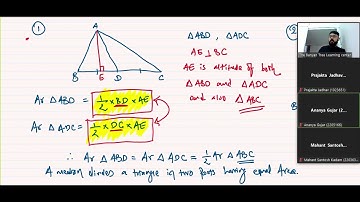 ①
A
B E D C
△ABD, △ADC
AE ⊥ BC
AE is altitude of both
△ABD and △ADC
and also △ABC
Ar △ABD = 1/2 × BD × AE
Ar △ADC = 1/2 × DC × AE
∴ Ar △ABD = Ar △ADC = 1/2 Ar △ABC
A median divides a triangle in two parts having equal Area.
The Banyan Tree Learning center
Prajakta Jadhav...
Ananya Gujar (2205100)
Mahant Santosh...
Mahant Santosh Kadam